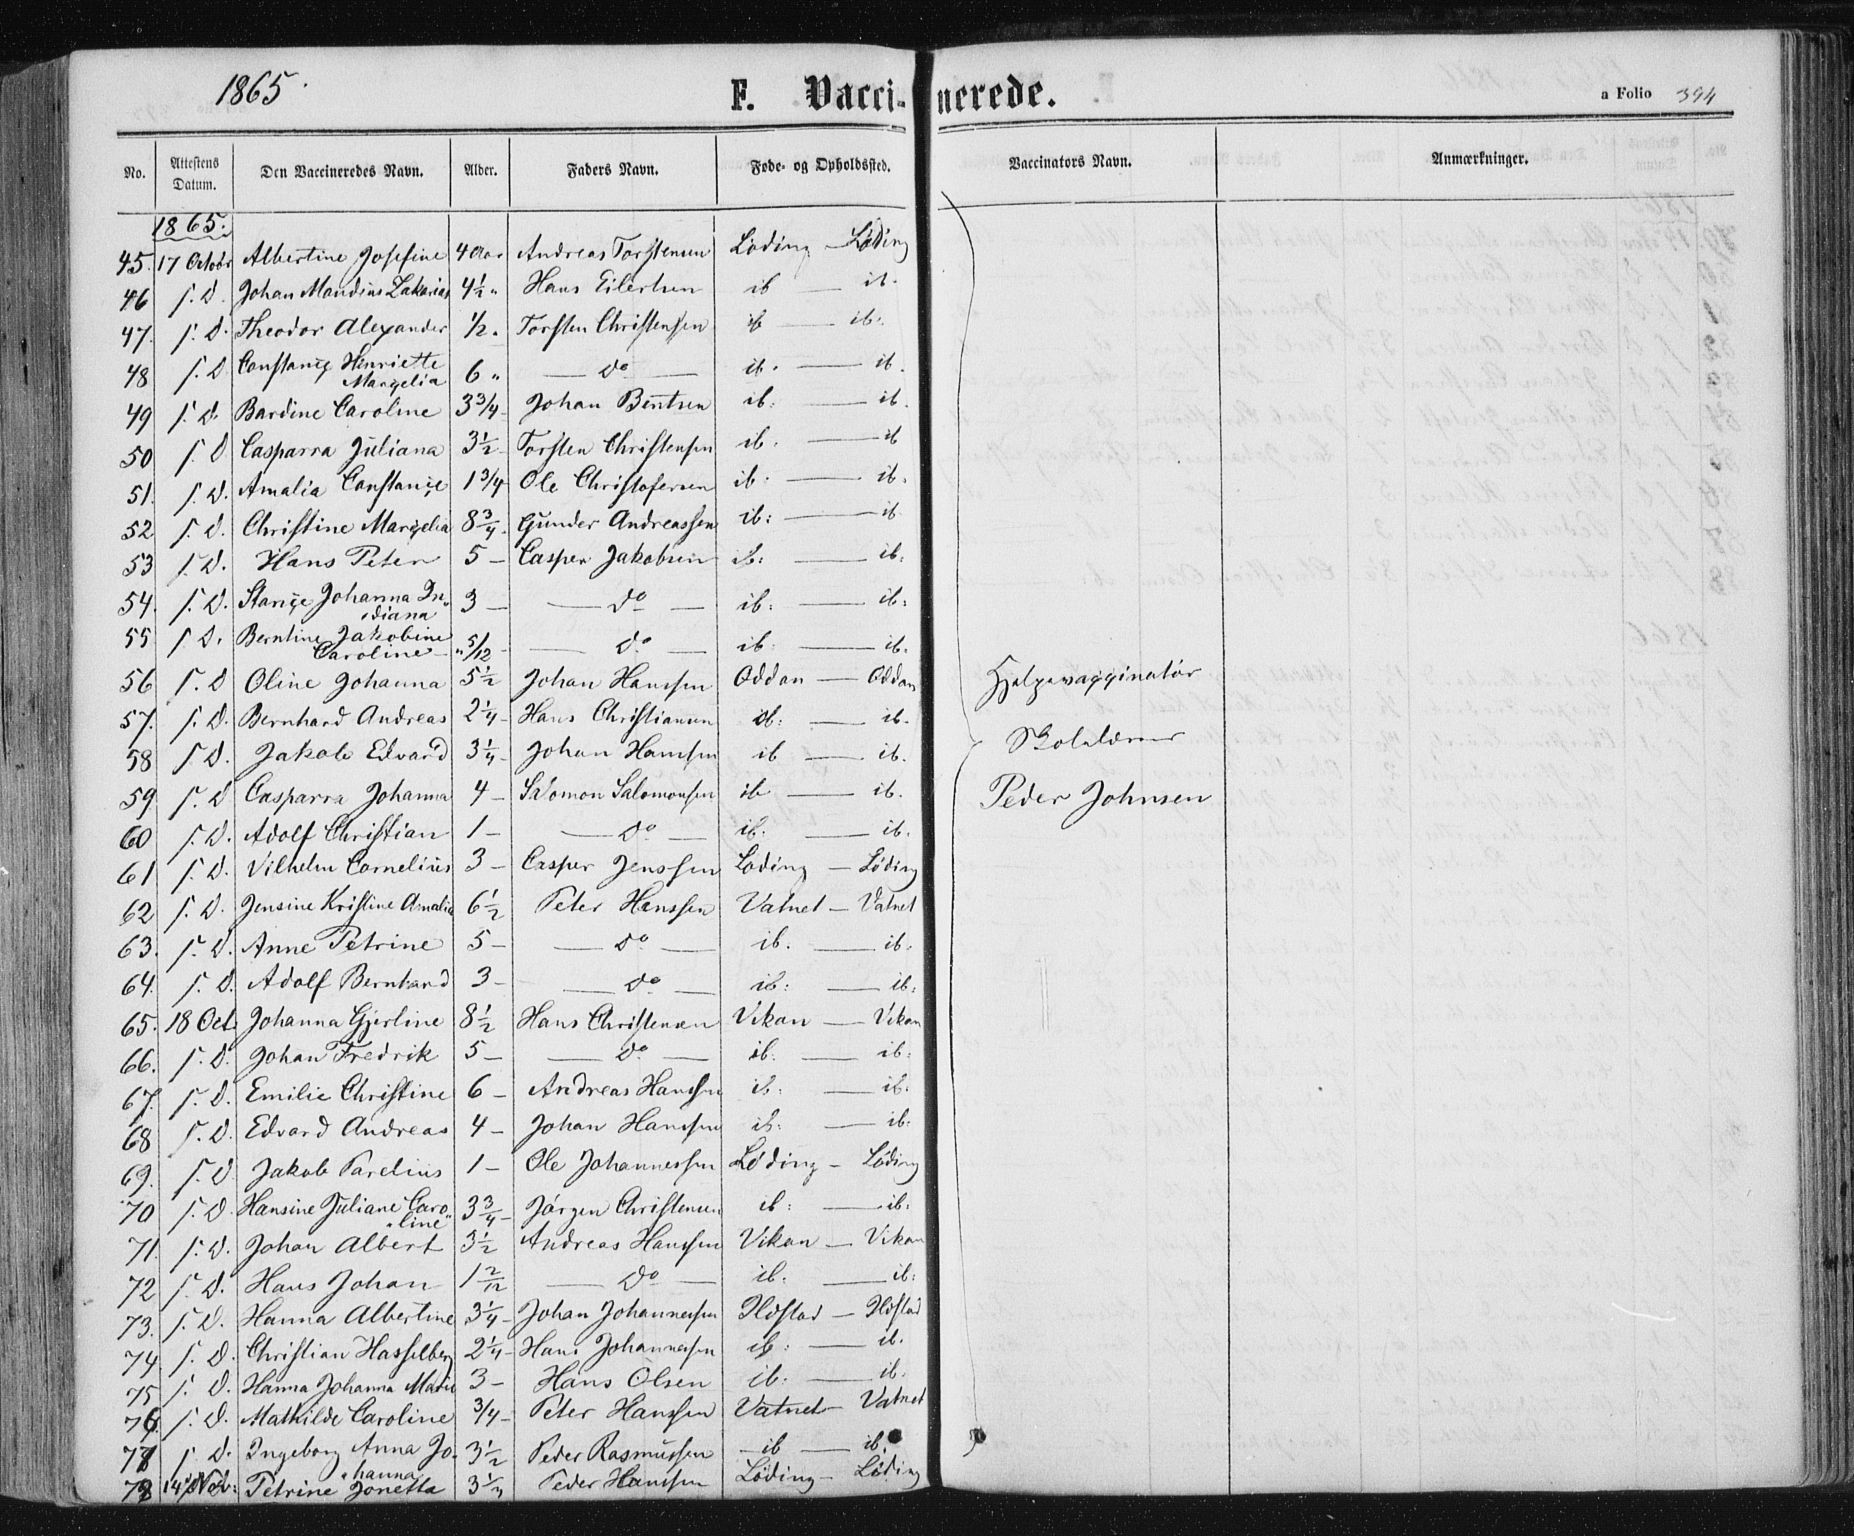 1865.
F. Vacci-nerede.
a Folio 394
No. Attestens Datum. Den Vaccineredes Navn. Alder. Faders Navn. Føde- og Opholdssted. Vaccinators Navn. Anmærkninger.
1865.
45. 17 Octobr Albertine Josefine 4 Aar Andreas Torstensen Løding — Løding
46 s. D. Johan Mandius Zakarias 4½ " Hans Eilertsen ib — ib.
47. s. D. Theodor Alexander ½ " Torsten Christensen ib — ib.
48 s. D Constançe Henriette Marçelia 6 " — do — ib. — ib.
49 s. D. Bardine Caroline 3¾ - Johan Bentsen ib. — ib.
50 s. D Casparra Juliana 3½ - Torsten Christensen ib. — ib
51. s. D. Amalia Constançe 1¾ - Ole Christofersen ib. — ib.
52 s. D. Christine Marçelia 8¾ - Gunder Andreassen ib: — ib
53 s. D. Hans Peter 5 — Casper Jakobsen ib: — ib:
54. s. D. Stançe Johanna In„diana 3 — — do — ib: — ib:
55 s. D. Berntine Jakobine Caroline " 5/12 - — do — ib: — ib.
56 s. D Oline Johanna 5½ Johan Hanssen Oddan — Oddan
57. s. D. Bernhard Andreas 2¼ - Hans Christiansen ib: — ib.
58 s. D. Jakob Edvard 3¼ - Johan Hanssen ib — ib.
59 s. D Casparra Johanna 4 — Salomon Salomonsen ib — ib.
60 s. D. Adolf Christian 1 — — do — ib. — ib.
61 s. D. Vilhelm Cornelius 3 — Casper Jenssen Løding — Løding
62 s. D. Jensine Kristine Amalia 6½ Peter Hanssen Vatnet — Vatnet
63. s. D. Anne Petrine 5 — — do — ib. — ib.
64. s. D. Adolf Bernhard 3 — — do — ib: — ib:
65. 18 Oct. Johanna Gjertine 8½ Hans Christensen Vikan — Vikan
66. s. D. Johan Fredrik 5 — — do — ib: — ib:
67. s. D. Emilie Christine 6 — Andreas Hanssen ib: — ib:
68 s. D. Edvard Andreas 4 — Johan Hanssen ib: — ib:
69. s. D Jakob Parelius 1 — Ole Johannessen Løding — Løding
70 s. D. Hansine Juliane Caro„line" 3¾ - Jørgen Christensen ib: — ib:
71. s. D. Johan Albert 3½ Andreas Hanssen Vikan — Vikan
72 s. D. Hans Johan 1 2/12 — do — ib. — ib:
73. s. D. Hanna Albertine 3¼ - Johan Johannessen Ildstad — Ildstad
74. s. D. Christian Hasselberg 2¼ - Hans Johannessen ib: — ib.
75 s. D. Hanna Johanna Marie 3 — Hans Olsen ib: — ib.
76 s. D. Mathilde Caroline ¾ — Peter Hanssen Vatnet — Vatnet
77 s. D. Ingeborg Anna Jo„hanna 3½ Peder Rasmussen ib — ib.
78 14 Nov: Petrine Jonetta 3¼ Peder Hanssen Løding — Løding
Hjelpevaççinatør
Skolelærer
Peder Johnsen